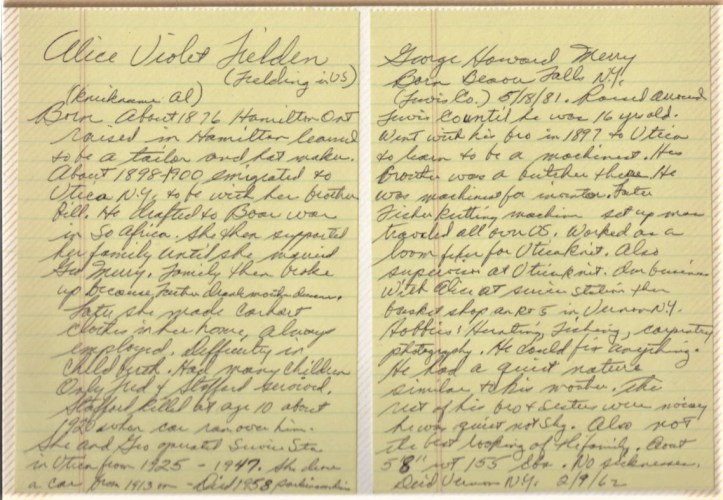 Alice Violet Fielden
(Fielding in US)
(Knickname Al)
Born About 1876 Hamilton Ont
raised in Hamilton learned
to be a tailor and hat maker.
About 1898-1900 emigrated to
Utica N.Y. to be with her brother
Bill. He drafted to Boar war
in So Africa. She then supported
her family until she married
Geo Merry. Family then broke
up because Father drank mother
Later she made
clothes in her home, always
employed. Difficulty in
Child birth. Had many children
Only Fred & Stafford survived.
Stafford killed at age 10 about
1920 when car ran over him.
She and Geo operated Service Sta
in Utica from 1925 - 1947. She drove
a car from 1913 on - Died 1958
George Howard Merry
Born Beaver Falls N.Y.
(Lewis Co.) 5/18/81. Raised around
Lewis Co until he was 16 yrs old.
Went with his bro in 1897 to Utica
to learn to be a machinest. His
brother was a butcher there. He
was machinest for inventor. Later
knitting machine set up man
traveled all over US. Worked as a
loom fixer for Utica knit. Also
supervisor at Utica knit. Own business
with Alice at service station then
basket shop on Rt 5 in Vernon N.Y.
Hobbies: Hunting, Fishing, carpentry
photography. He could fix anything.
He had a quiet nature
similar to his mother. The
rest of his bro & sisters were noisy
he was quiet not shy. Also not
the best looking of the family. About
5' 8" wt 155 lbs. No sicknesses.
Died Vernon N.Y. 2/9/62